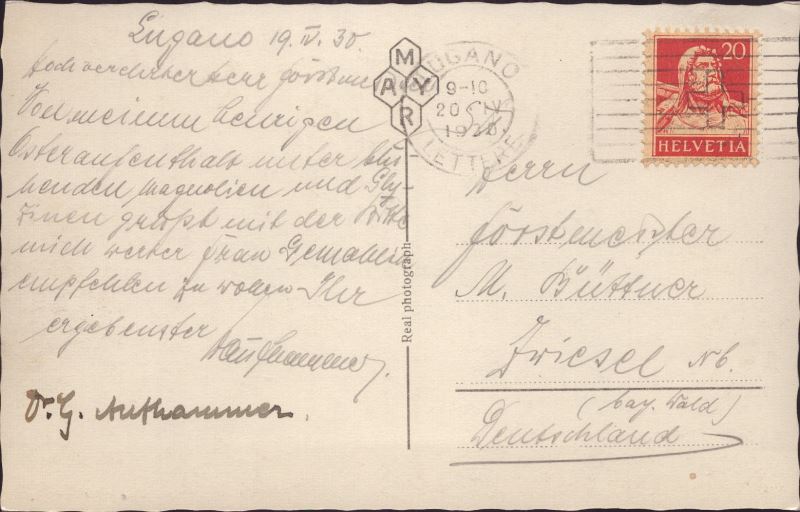 Lugano 19. IV. 30.
Hochverehrter Herr Förstmeister
Von meinem heurigen
Osteraufenthalt unter blü-
henden Magnolien und Gly-
zinen grüßt mit der Bitte
mich werter Frau Gemahlin
empfehlen zu wollen Ihr
ergebenster
Aufhammer.
Dr. G. Aufhammer.
MAYR
Real photograph
LUGANO
9-10
20 IV
1930
LETTERE
20
HELVETIA
Herrn
Förstmeister
M. Büttner
Zwiesel Nb.
(bay. Wald)
Deutschland